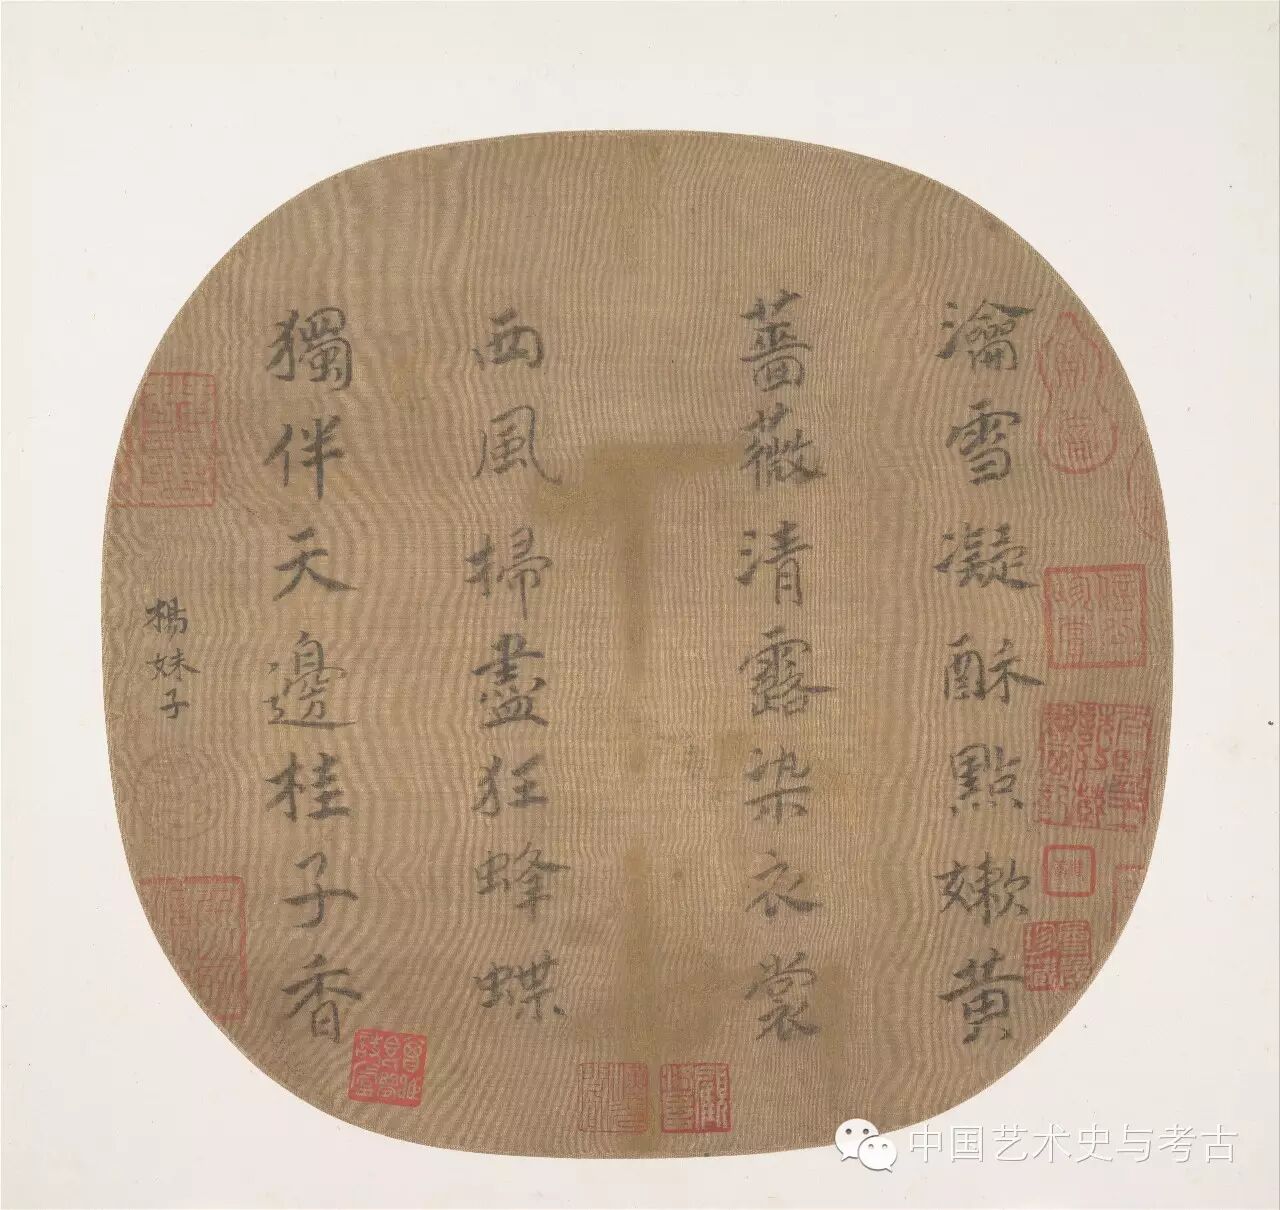 瀹雪凝酥點嫰黄
薔薇清露染衣裳
西風掃盡狂蜂蝶
獨伴天邊桂子香
楊妹子
中国艺术史与考古